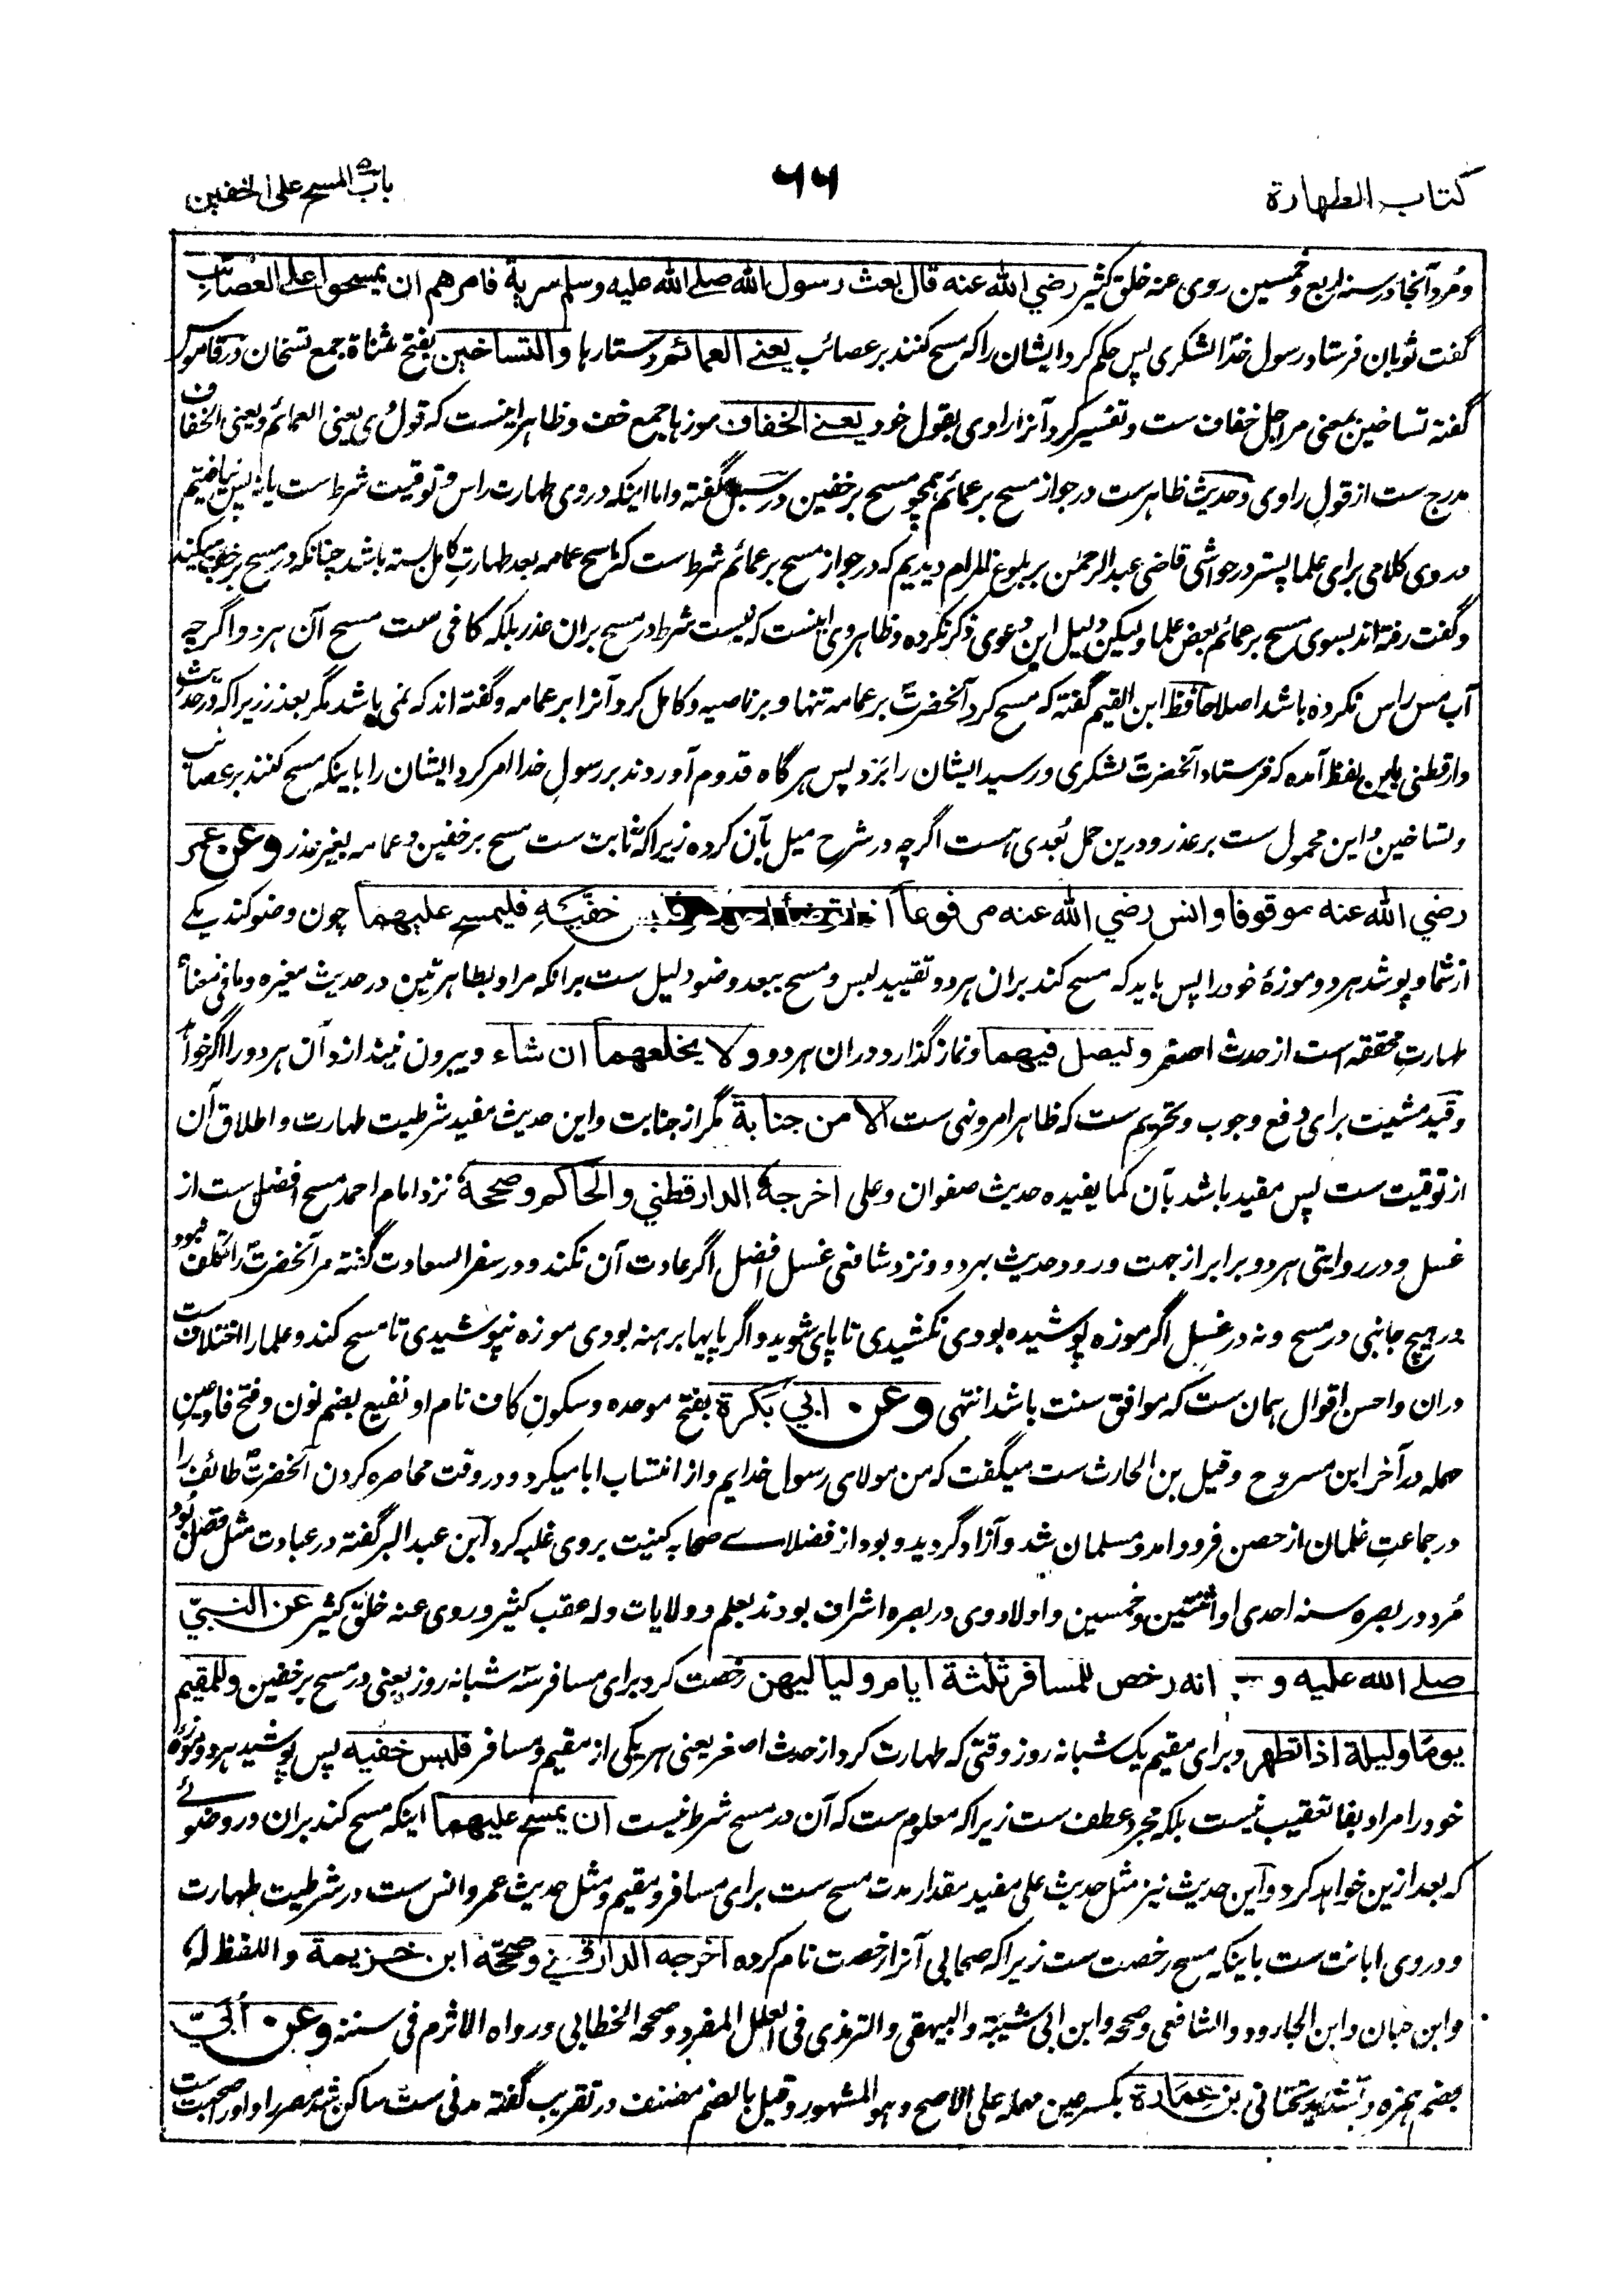 كتاب الطهارة
٦٦
باب المسح على الخفين
ومرد آنجا در سنه اربع وخمسين روى عنه خلق كثير رضي الله عنه قال بعث رسول الله صلے الله عليه وسلم سرية فامرهم ان يمسحوا على العصائب
گفت ثوبان فرستاد رسول خدا لشكرى پس حكم كرد ايشان را كه مسح كنند بر عصائب يعنے العمائم دستارها والتساخين بفتح مثناة جمع تسخان در قاموس
گفته تساخين بمعنى مراجل خفاف ست وتفسير كرد آنرا راوى بقول خود يعنے الخفاف موزها جمع خف وظاهر اينست كه قول وى يعنى العمائم ويعنى الخفاف
مدرج ست از قول راوى وحديث ظاهر ست در جواز مسح بر عمائم همچو مسح بر خفين در سبل گفته واما اينكه در وى طهارت راس وتوقيت شرط ست يا نه پس نيافتيم
در وى كلامى براى علما پستر در حواشى قاضى عبد الرحمٰن بر بلوغ المرام ديديم كه در جواز مسح بر عمائم شرط ست كه ماسح عمامه بعد طهارتِ كامل بسته باشد چنانكه در مسح بر خف ميكند
وگفت رفته اند بسوى مسح بر عمائم بعض علما وليكن دليل اين دعوى ذكر نكرده وظاهر وى اينست كه نيست شرط در مسح بران عذر بلكه كافى ست مسح آن هر دو اگرچه
آب مس راس نكرده باشد اصلا حافظ ابن القيم گفته كه مسح كرد آنحضرت بر عمامه تنها وبر ناصيه وكامل كرد آنرا بر عمامه وگفته اند كه نمى باشد مگر بعذر زيرا كه در حديث
دارقطنى باين لفظ آمده كه فرستاد آنحضرت لشكرى ورسيد ايشان را برد پس هر گاه قدوم آوردند بر رسول خدا امر كرد ايشان را باينكه مسح كنند بر عصائب
وتساخين واين محمول ست بر عذر ودرين حمل بُعدى هست اگرچه در شرح ميل بآن كرده زيرا كه ثابت ست مسح بر خفين وعمامه بغير عذر وعن عمر
رضي الله عنه موقوفا وانس رضي الله عنه مرفوعا اذا توضأ احدكم ولبس خفيه فليمسح عليهما چون وضو كند يكے
از شما وپوشد هر دو موزهٔ خود را پس بايد كه مسح كند بران هر دو وتقييد لبس ومسح ببعد وضو دليل ست برانكه مراد بطاهرتين در حديث مغيره وما فى معناه
طهارتِ محققه است از حدث اصغر وليصل فيهما ونماز گذارد دران هر دو ولا يخلعهما ان شاء وبيرون نيندازد آن هر دو را اگر خواهد
وقيد مشيت براى دفع وجوب وتحريم ست كه ظاهر امر ونهى ست الا من جنابة مگر از جنابت واين حديث مفيد شرطيت طهارت واطلاق آن
از توقيت ست پس مقيد باشد بآن كما يفيده حديث صفوان وعلى اخرجه الدارقطني والحاكم وصححه نزد امام احمد مسح افضل ست از
غسل ودر روايتى هر دو برابر از جهت ورود حديث بهر دو ونزد شافعى غسل افضل اگر عادت آن نكند ودر سفر السعادت گفته مر آنحضرت را تكلف نبود
در هيچ جانبى در مسح ونه در غسل اگر موزه پوشيده بودى نكشيدى تا پاى شويد واگر پايها برهنه بودى موزه نپوشيدى تا مسح كند وعلما را اختلاف ست
دران واحسن اقوال همان ست كه موافق سنت باشد انتهى وعن ابي بَكْرة بفتح موحده وسكونِ كاف نام او نفيع بضم نون وفتح فا وعين
مهمله در آخر ابن مسروح وقيل بن الحارث ست ميگفت كه من مولاى رسول خدايم واز انتساب ابا ميكرد ودر وقت محاصره كردن آنحضرت طائف را
در جماعتِ غلمان از حصن فرود آمد ومسلمان شد وآزاد گرديد وبود از فضلاے صحابه كنيت بر وى غلبه كرد ابن عبد البر گفته در عبادت مثل بود
مُرد در بصره سنه احدى او اثنتين وخمسين واولاد وى در بصره اشراف بودند بعلم وولايات وله عقب كثير وروى عنه خلق كثير عن النبيّ
صلے الله عليه و انه رخص للمسافر ثلثة ايام ولياليهن رخصت كرد براى مسافر سه شبانه روز يعنى در مسح بر خفين وللمقيم
يومًا وليلة اذا تطهر وبراى مقيم يك شبانه روز وقتى كه طهارت كرد از حدث اصغر يعنى هر يكى از مقيم ومسافر فلبس خفيه پس پوشيد هر دو موزهٔ
خود را مراد بفا تعقيب نيست بلكه مجرد عطف ست زيرا كه معلوم ست كه آن در مسح شرط نيست ان يمسح عليهما اينكه مسح كند بران در وضوئے
كه بعد ازين خواهد كرد واين حديث نيز مثل حديث على مفيد مقدار مدت مسح ست براى مسافر ومقيم ومثل حديث عمر وانس ست در شرطيت طهارت
ودر وى ابانت ست باينكه مسح رخصت ست زيرا كه صحابى آنرا رخصت نام كرده اخرجه الدارقطني وصححه ابن خزيمة واللفظ له
وابن حبان وابن الجارود والشافعى وصححه وابن ابى شيبة والبيهقى والترمذى فى العلل المفرد وصححه الخطابى ورواه الاثرم فى سننه وعن أُبيّ
بضم همزه وتشديد تحتانى بن عِمَارة بكسر عين مهمله على الاصح وهو المشهور وقيل بالضم مصنف در تقريب گفته مدنى ست ساكن شد مصر را واو را صحبت ست